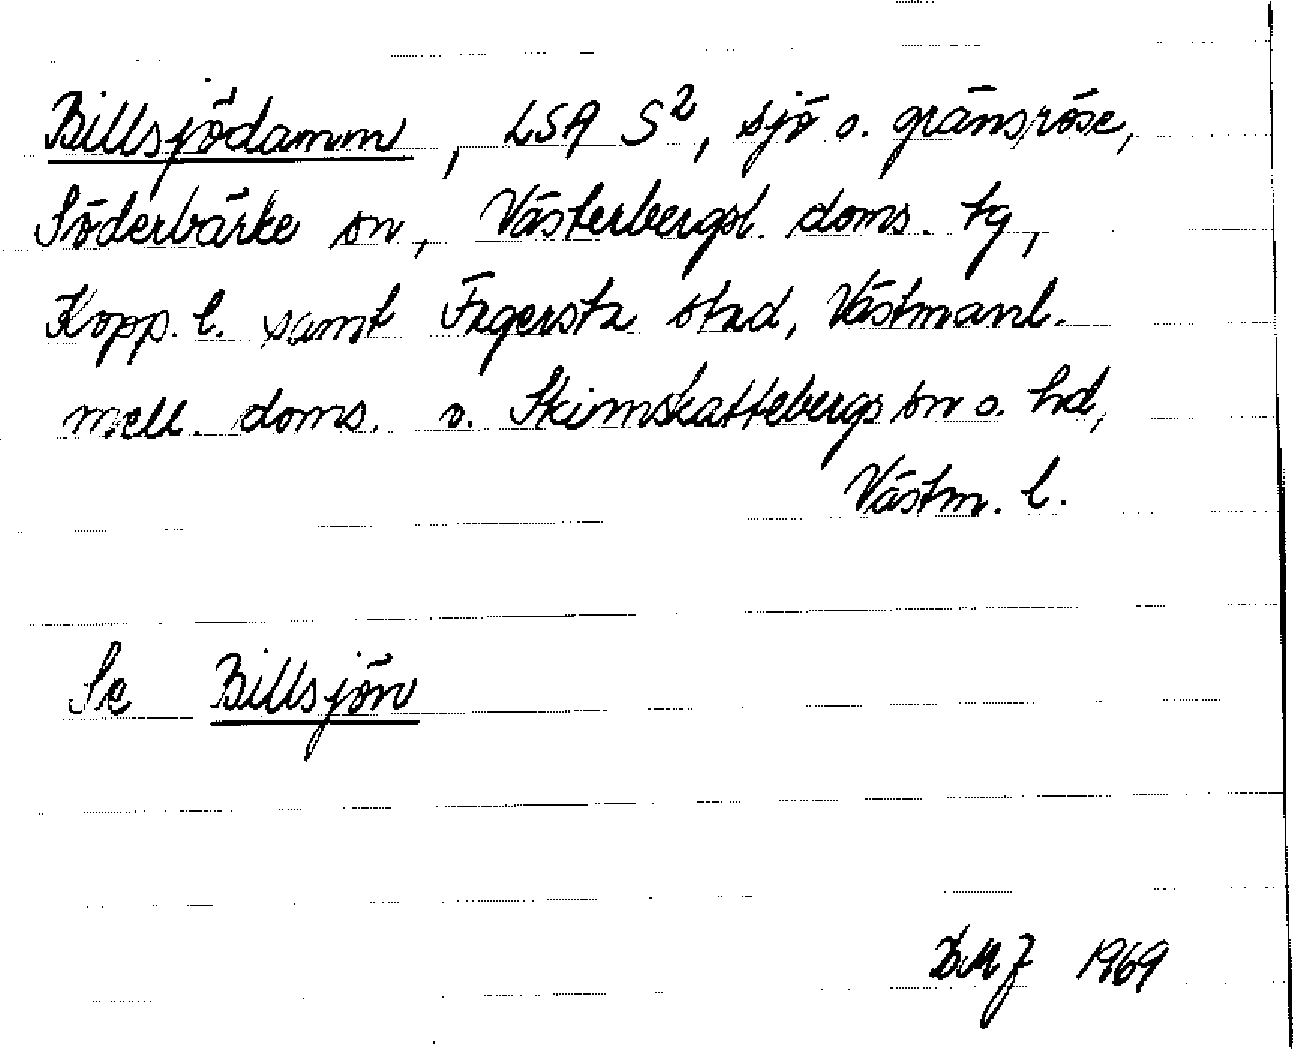 Billsjödamm, LSA S2, sjö o. gränsröse,
Söderbärke sn, Västerbergsl. doms. tg,
Kopp. l. samt Fagersta stad, Västmanl.
mell. doms. o. Skinnskattebergs sn o. hd,
Västm. l.
Se Billsjön
BMJ 1969